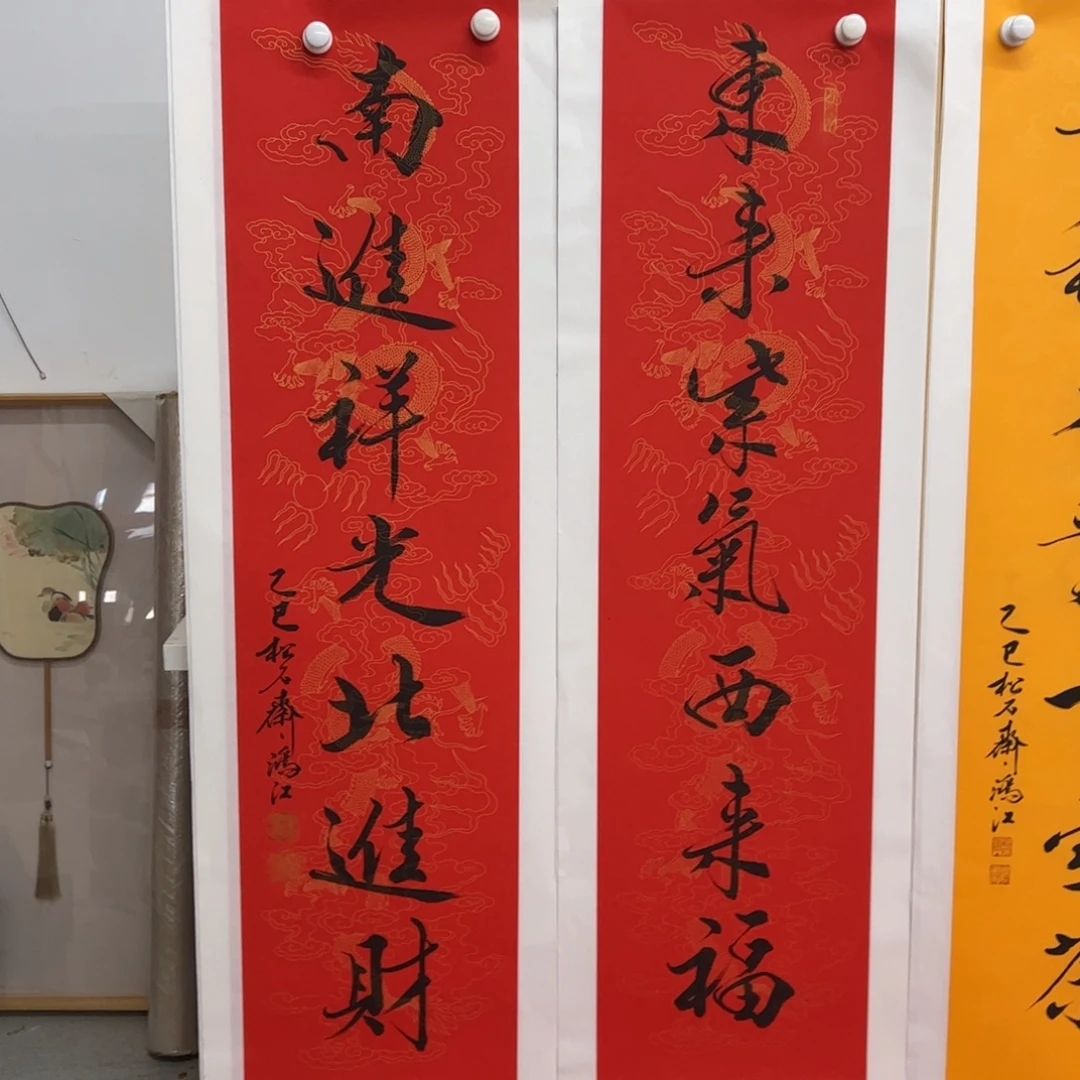 東来紫氣西来福
南進祥光北進財
乙巳松石齋鴻江
乙巳松石齋鴻江